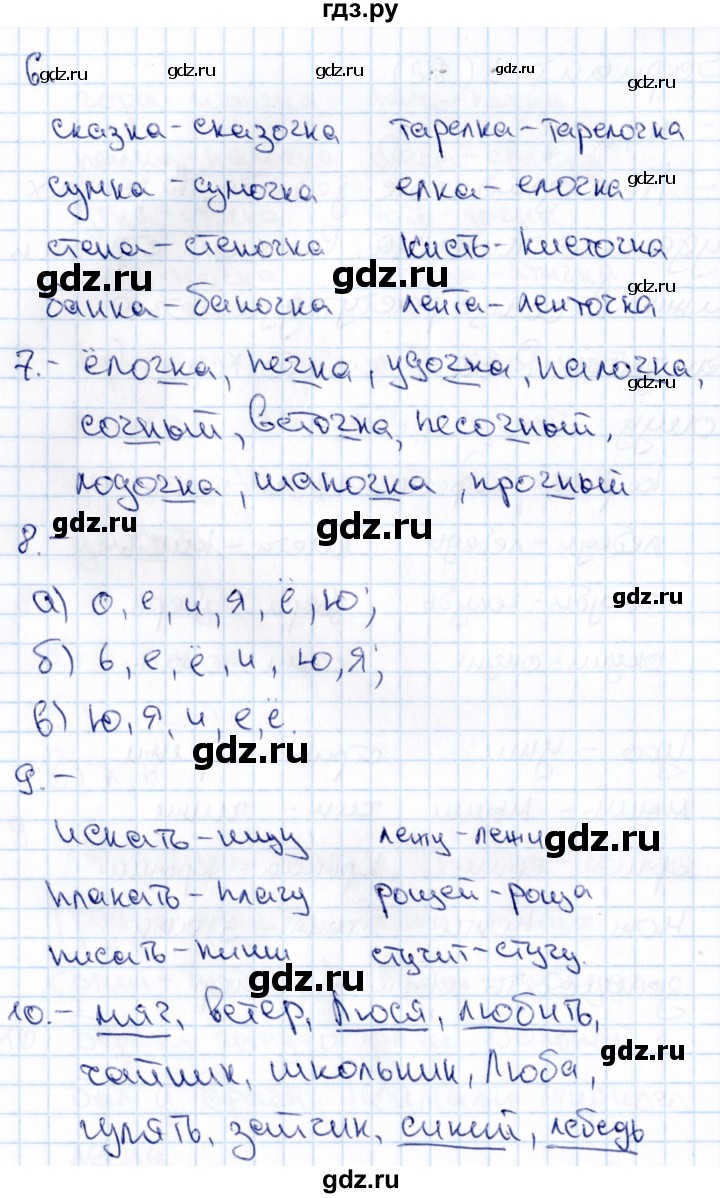 гдз.ру
6.- gdz.ru gdz.ru gdz.ru gdz.ru gdz.ru
сказка-сказочка тарелка-тарелочка
gdz.ru
сумка-сумочка елка-елочка
gdz.ru
стена-стеночка кисть-кисточка
gdz.ru gdz.ru gdz.ru
банка-баночка лента-ленточка
gdz.ru
7.- ёлочка, печка, удочка, палочка,
gdz.ru
сочный, веточка, песочный,
лодочка, шапочка, прочный
gdz.ru gdz.ru
8.-
а) о, е, и, я, ё, ю;
gdz.ru
б) ь, е, ё, и, ю, я;
в) ю, я, и, е, ё.
gdz.ru
9.-
искать-ищу лежу-лежи
gdz.ru
плакать-плачу рощей-роща
писать-пиши стучит-стучу.
gdz.ru
10.- мяч, ветер, Люся, любить,
gdz.ru
чайник, школьник, Люба,
гулять, зайчик, синий, лебедь
gdz.ru